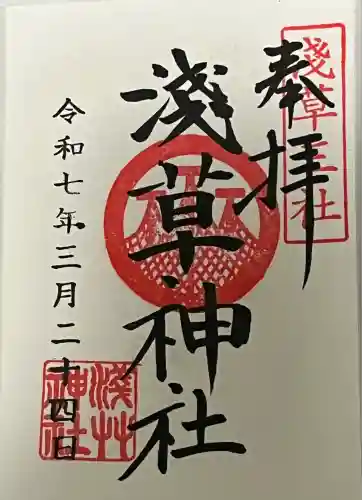 奉拝
淺草神社
令和七年三月二十四日
淺草三社
淺草神社